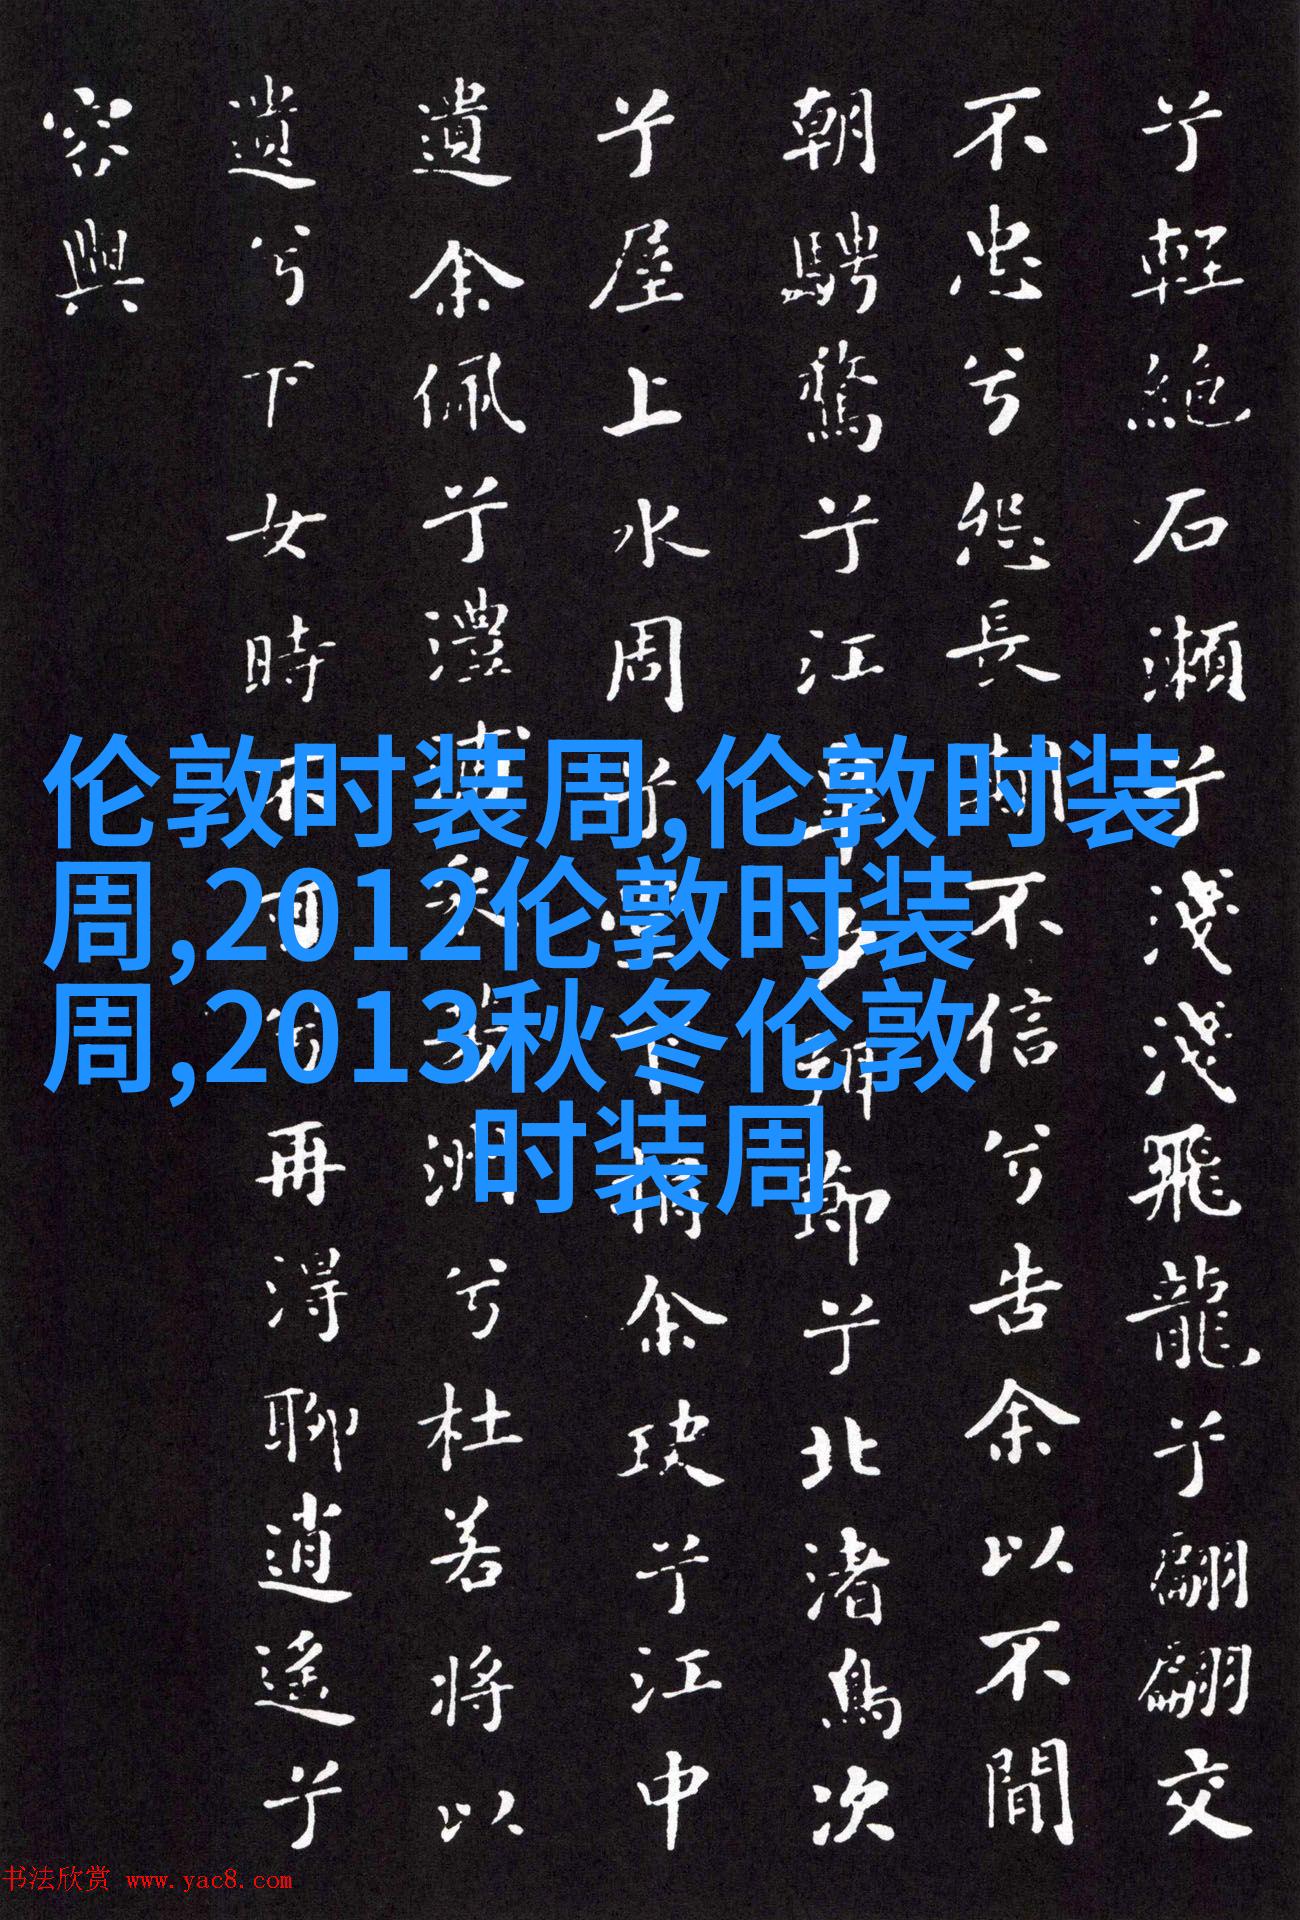 兮輕絕石瀨兮淺淺飛龍兮翩翩交
不忠兮怨長期不信兮告余以不間
朝騁騖兮江皋夕弭節兮北渚鳥次
兮屋上水周兮堂下捐余玦兮江中
遺余佩兮澧浦采芳洲兮杜若將以
遺兮下女時不可兮再得聊逍遙兮
容與
伦敦时装周,伦敦时装
周,2012伦敦时装
周,2013秋冬伦敦
时装周
书法欣赏 www.yac8.com